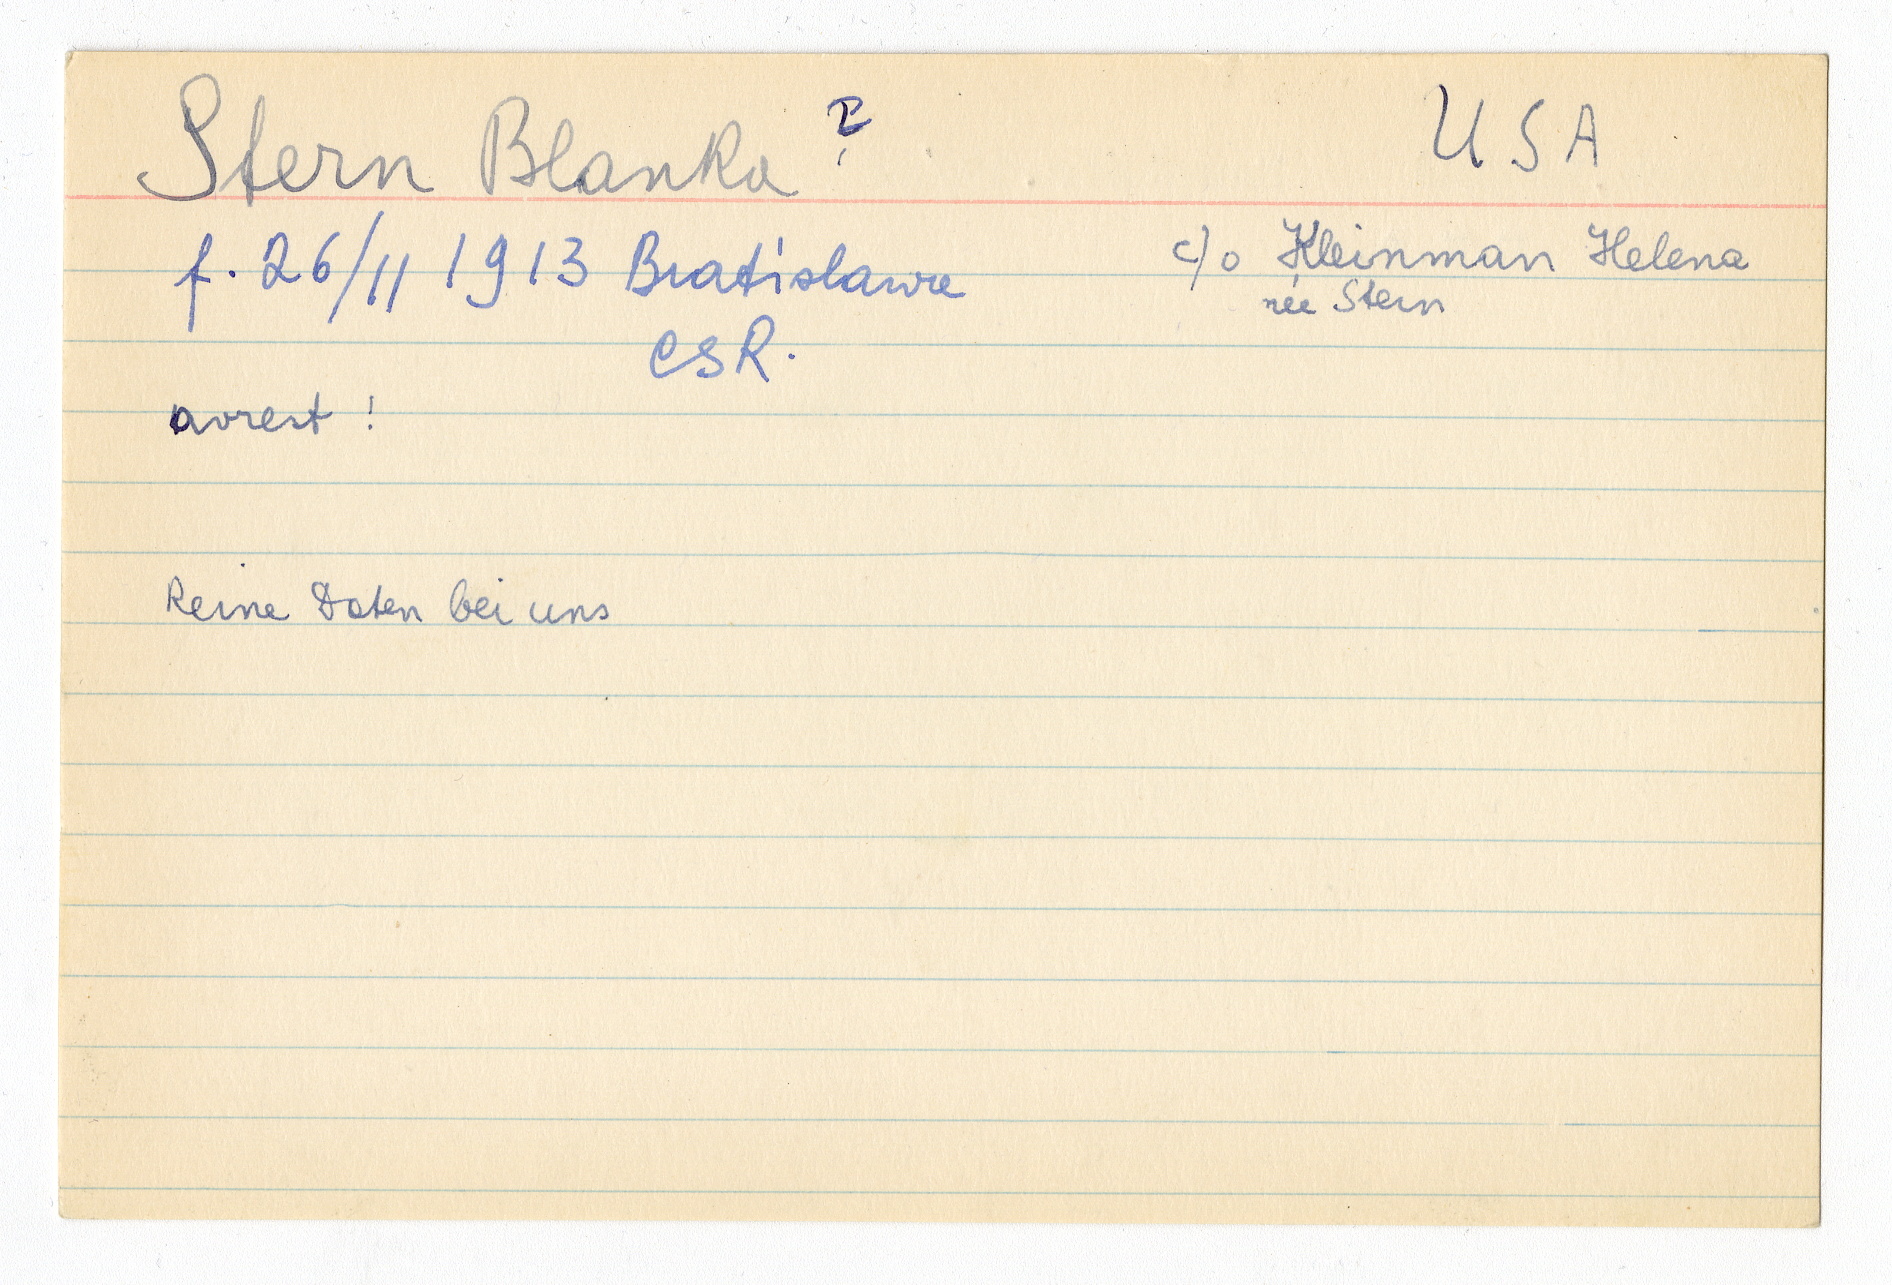 Stern Blanka ?
USA
f. 26/11 1913 Bratislawa
CSR.
c/o Kleinman Helena
née Stern
arrest !
Keine Daten bei uns